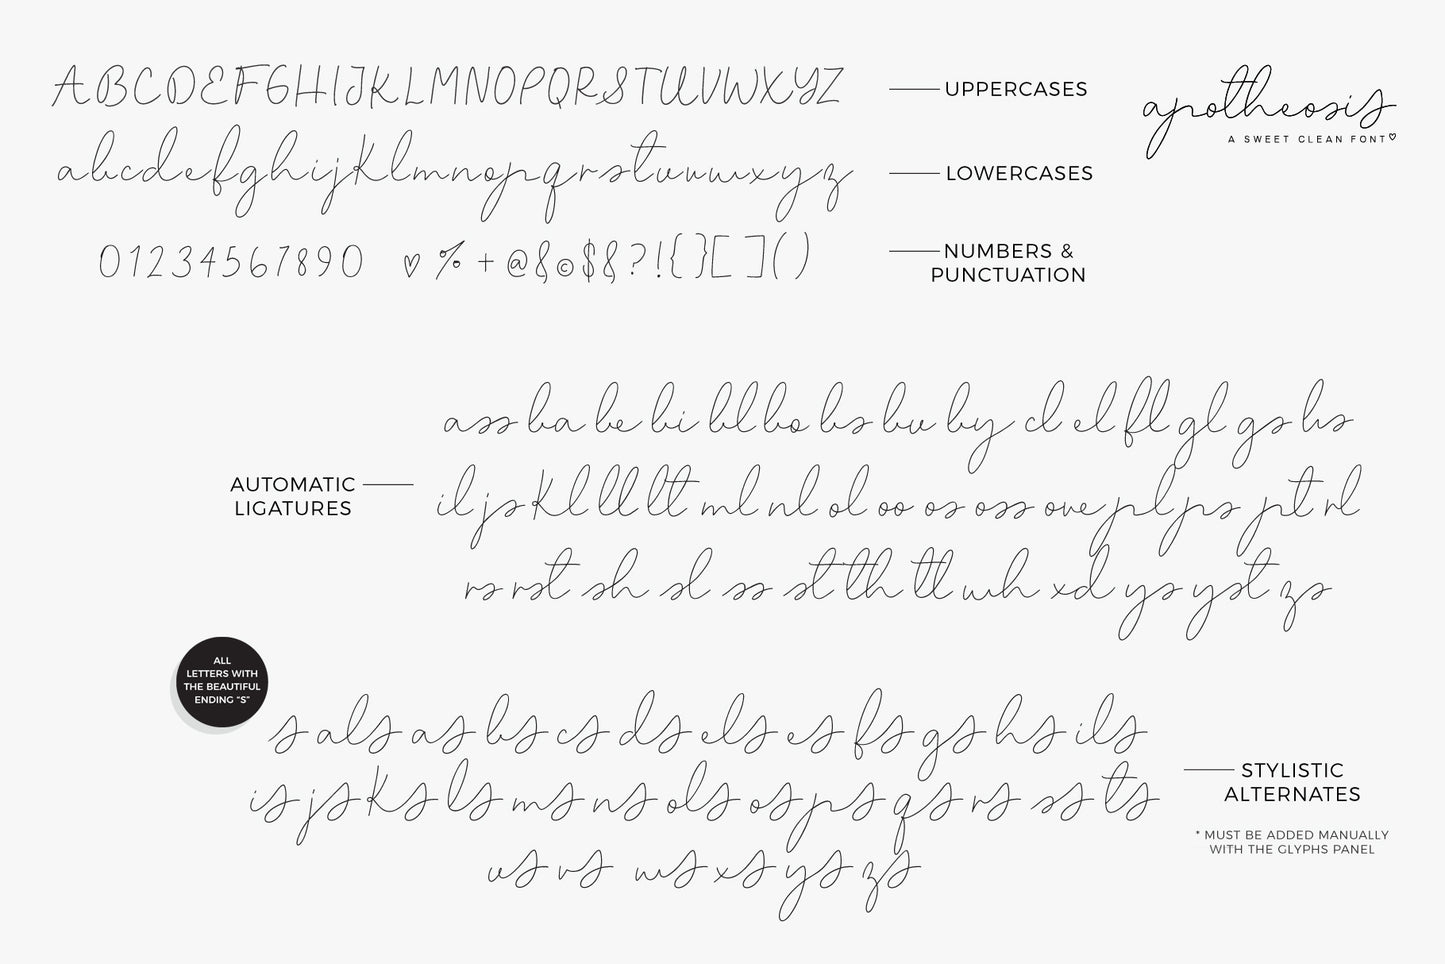 ABCDEFGHIJKLMNOPQRSTUVWXYZ
UPPERCASES
apotheosis
A SWEET CLEAN FONT♡
abcdefghijklmnopqrstuvwxyz
LOWERCASES
01234567890 ♡ % + @ & © $ & ? ! { } [ ] ( )
NUMBERS &
PUNCTUATION
ass ba be bi bl bo bs bu by cl el fl gl gs hs
AUTOMATIC
LIGATURES
il js kl ll lt ml nl ol oo os oss ove pl ps pt rl
rs rst sh sl ss st th tl wh xd ys yst zs
ALL
LETTERS WITH
THE BEAUTIFUL
ENDING "S"
s als as bs cs ds els es fs gs hs ils
is js ks ls ms ns ols os ps qs rs ss ts
us vs ws xs ys zs
STYLISTIC
ALTERNATES
* MUST BE ADDED MANUALLY
WITH THE GLYPHS PANEL